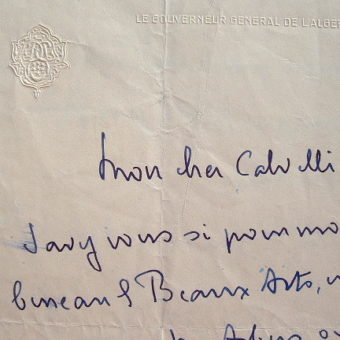 LE GOUVERNEUR GENERAL DE L'ALGER
Mon cher Calvelli
Savez vous si pour mo
bureau & Beaux Arts,